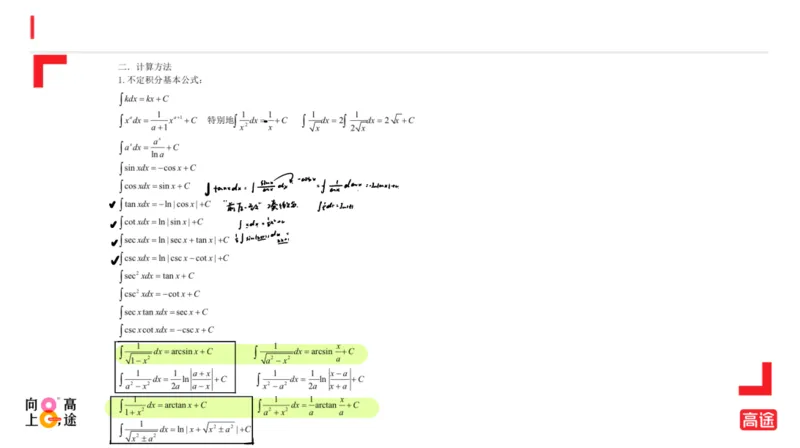 二．计算方法
1.不定积分基本公式：
∫kdx = kx + C
∫xᵃdx = 1/(a+1) xᵃ⁺¹ + C 特别地∫1/x² dx = -1/x + C ∫1/√x dx = 2∫1/(2√x) dx = 2√x + C
∫aˣdx = aˣ/ln a + C
∫sin xdx = −cos x + C
∫cos xdx = sin x + C ∫tanxdx = ∫sinx/cosx dx
∫tan xdx = −ln|cos x| + C
∫cot xdx = ln|sin x| + C
∫sec xdx = ln|sec x + tan x| + C
∫csc xdx = ln|csc x − cot x| + C
∫sec² xdx = tan x + C
∫csc² xdx = −cot x + C
∫sec x tan xdx = sec x + C
∫csc x cot xdx = −csc x + C
∫1/√(1−x²) dx = arcsin x + C ∫1/√(a²−x²) dx = arcsin x/a + C
∫1/(a²−x²) dx = 1/(2a) ln|(a+x)/(a−x)| + C ∫1/(x²−a²) dx = 1/(2a) ln|(x−a)/(x+a)| + C
∫1/(1+x²) dx = arctan x + C ∫1/(a²+x²) dx = 1/a arctan x/a + C
∫1/√(x²±a²) dx = ln|x + √(x²±a²)| + C
向 高
上 途
高途